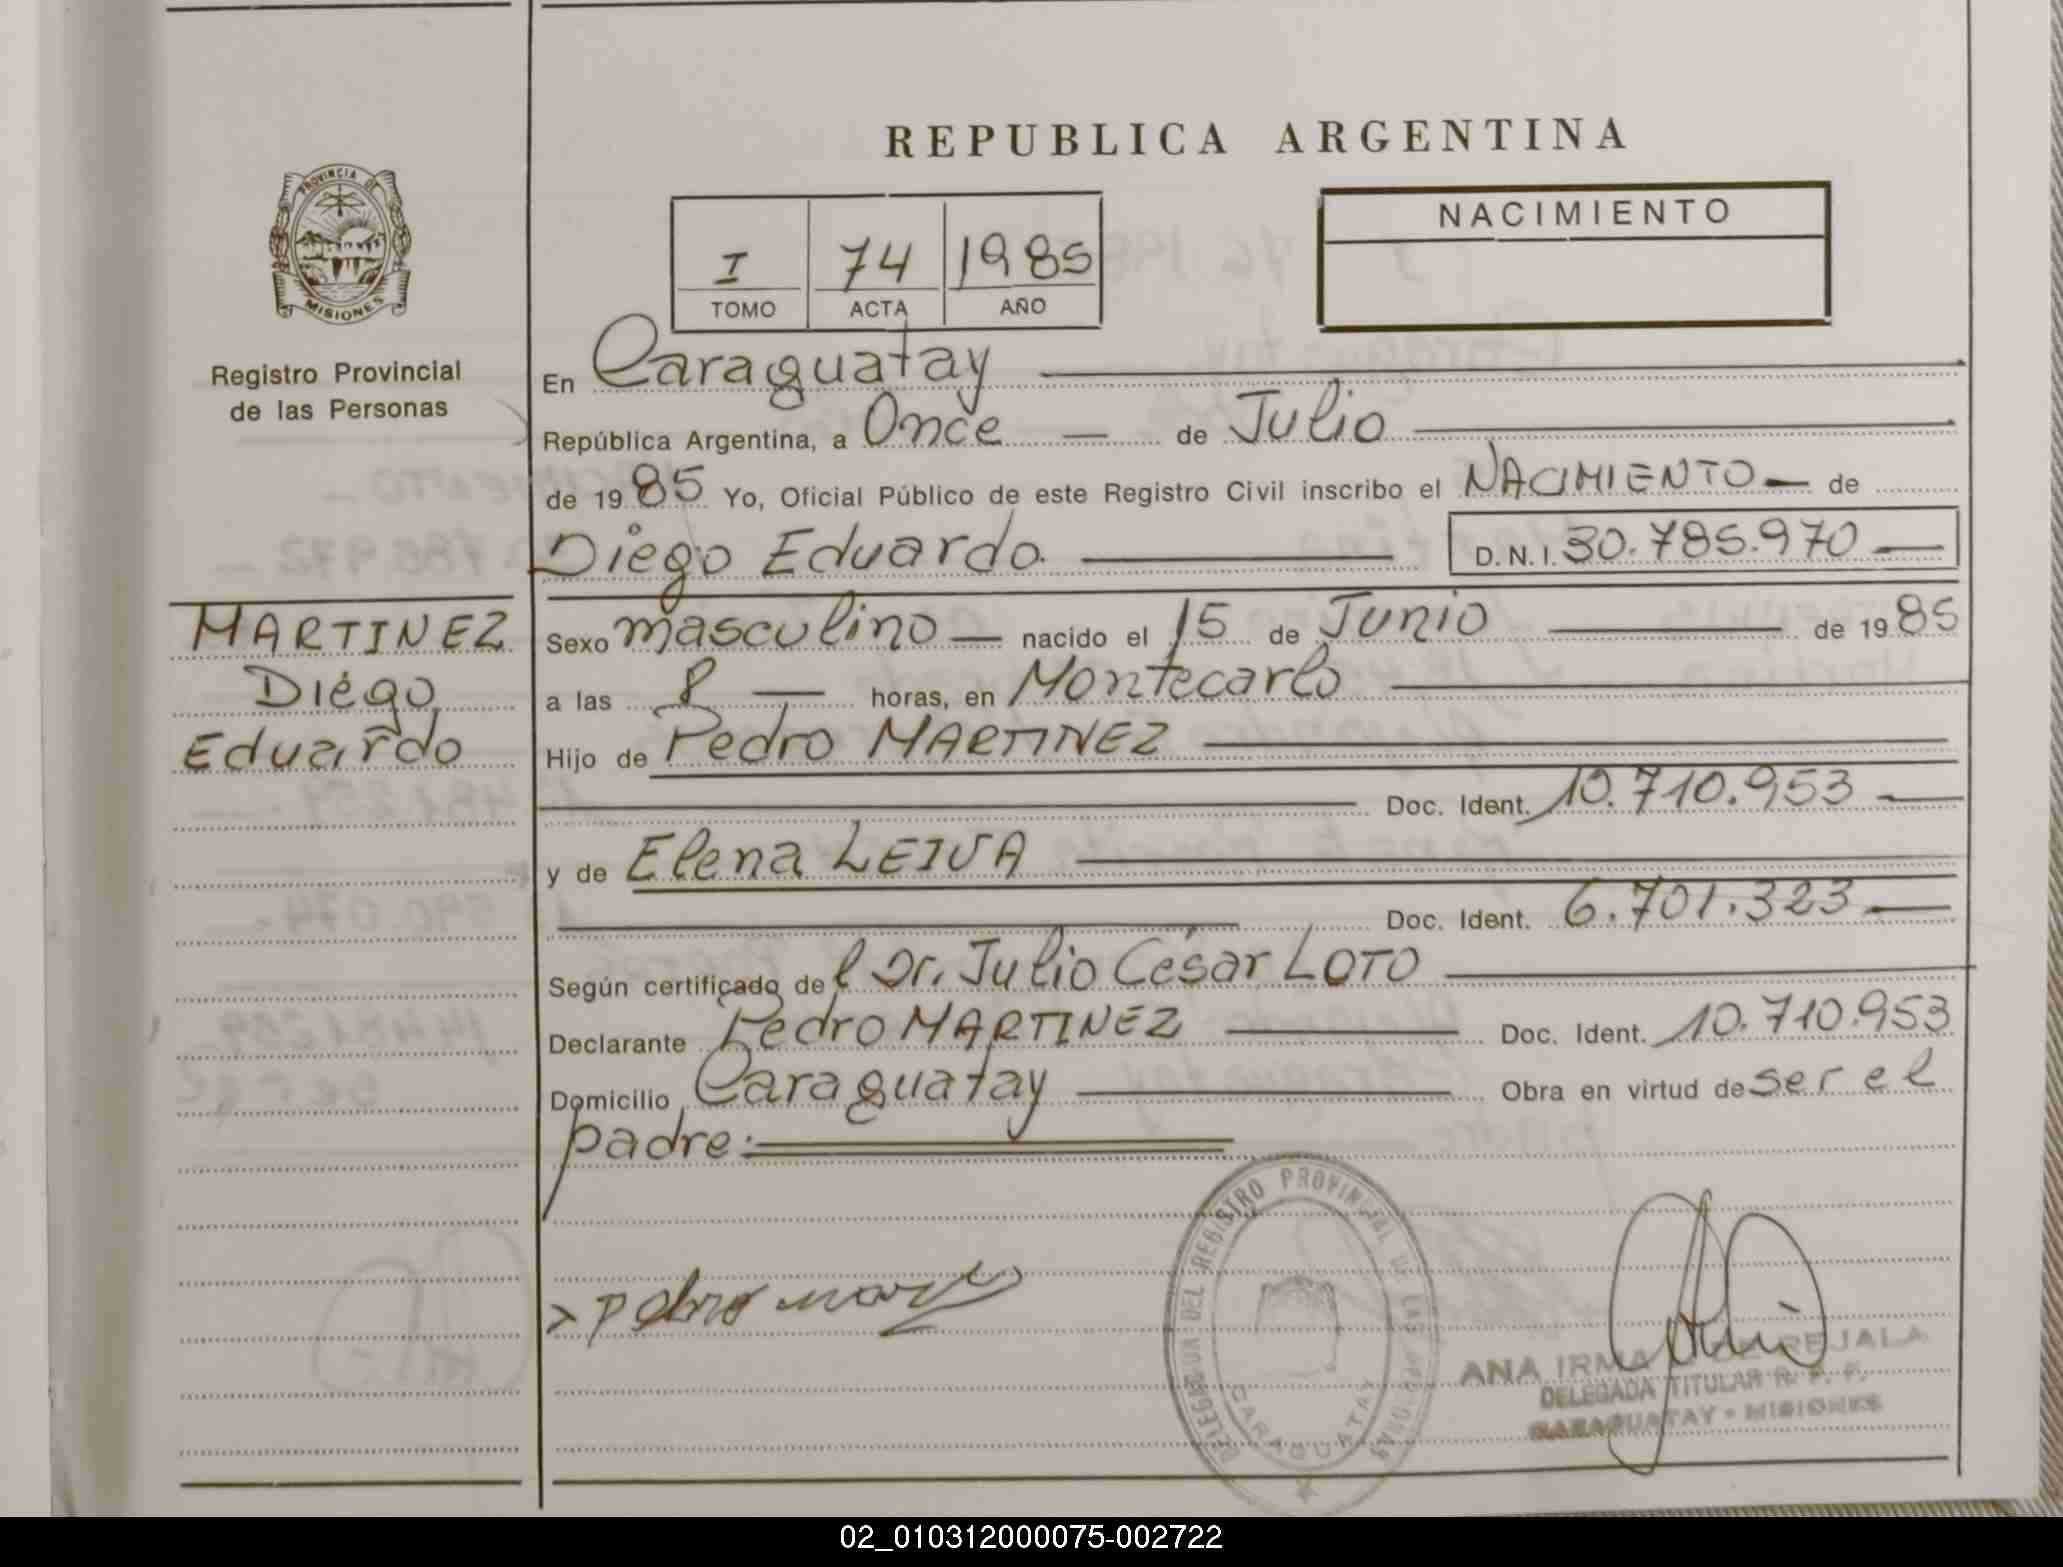 REPUBLICA ARGENTINA
PROVINCIA DE
MISIONES
Registro Provincial
de las Personas
I 74 1985
TOMO ACTA AÑO
NACIMIENTO
En Caraguatay
República Argentina, a Once de Julio
de 1985 Yo, Oficial Público de este Registro Civil inscribo el NACIMIENTO de
Diego Eduardo. D.N.I. 30.785.970
MARTINEZ
Diego
Eduardo
Sexo masculino nacido el 15 de Junio de 1985
a las 8 horas, en Montecarlo
Hijo de Pedro MARTINEZ
Doc. Ident. 10.710.953
y de Elena LEIVA
Doc. Ident. 6.701.323
Según certificado del Dr. Julio César LOTO
Declarante Pedro MARTINEZ Doc. Ident. 10.710.953
Domicilio Caraguatay Obra en virtud de ser el
padre:
DELEGACION DEL REGISTRO PROVINCIAL DE LAS PERSONAS
CARAGUATAY
ANA IRMA DE REJALA
DELEGADA TITULAR R. P. P.
CARAGUATAY - MISIONES
02_010312000075-002722